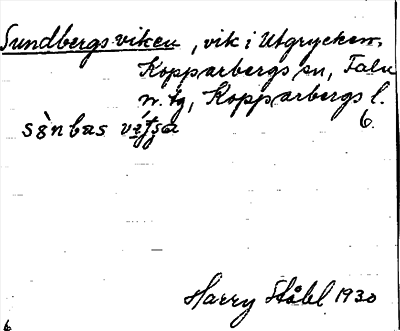 Sundbergsviken, vik i Utgrycken,
Kopparbergs sn, Falu
n. tg, Kopparbergs l.
6.
Harry Ståhl 1930
6